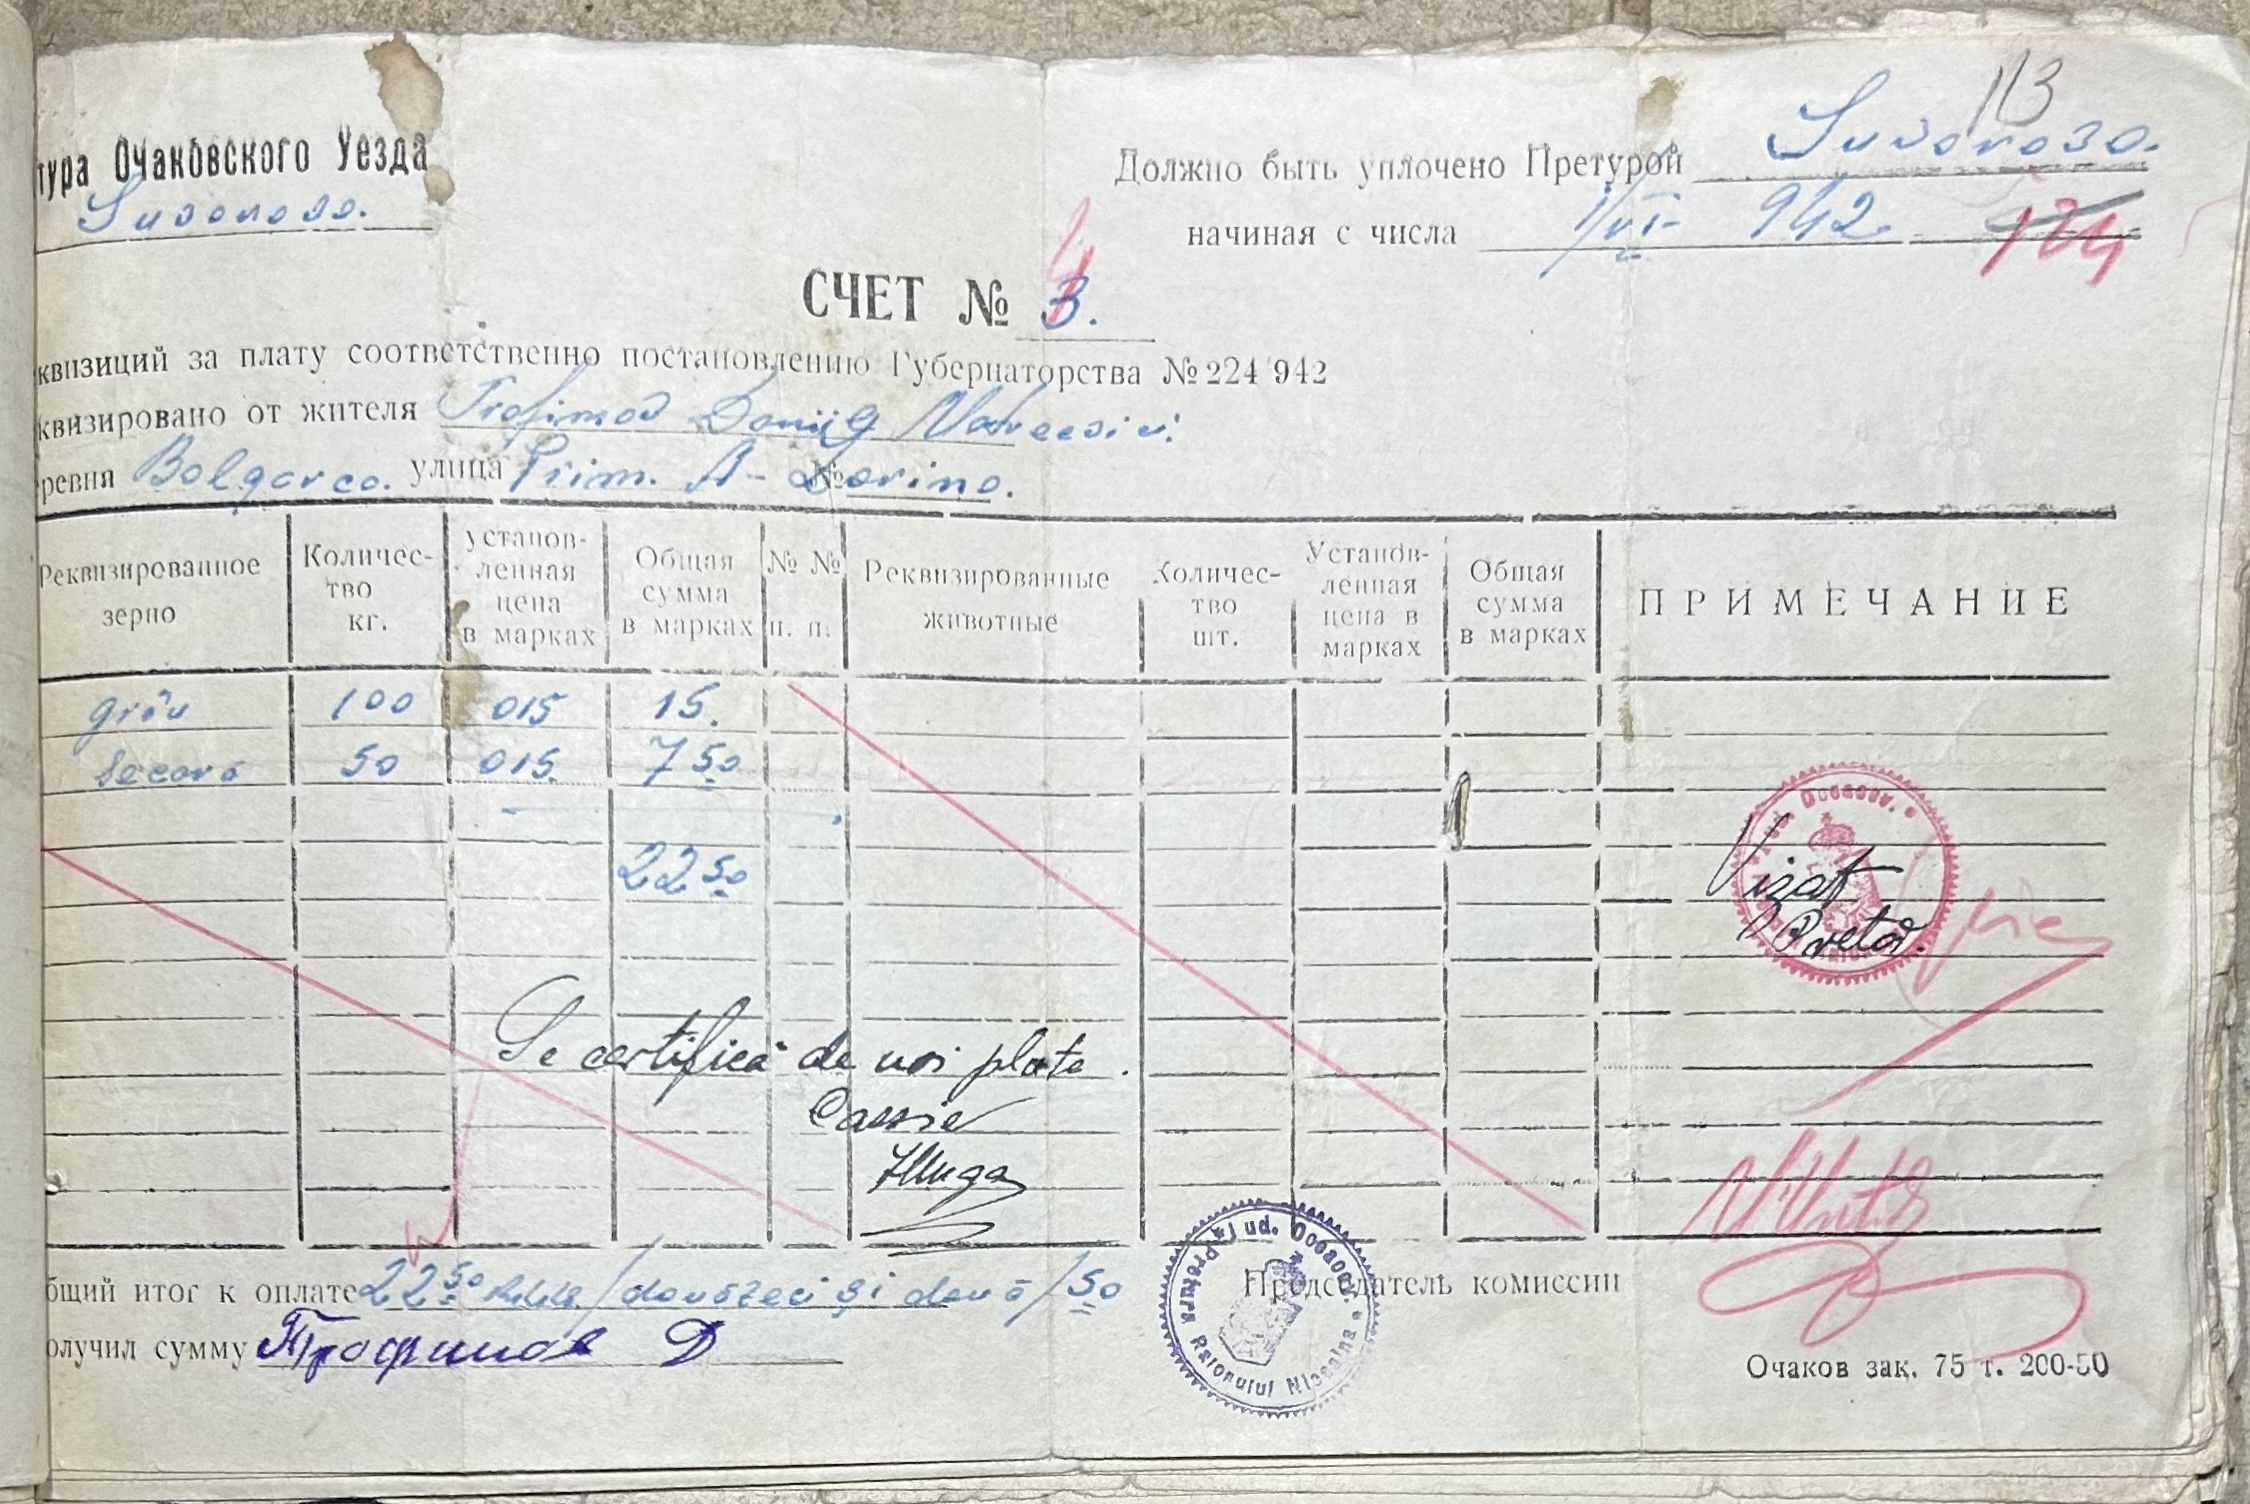 113
тура Очаковского Уезда
Suvorovo.
Должно быть уплочено Претурой Suvorovo.
начиная с числа 1/VI- 942.
124
СЧЕТ № 3.
4
квизиций за плату соответственно постановлению Губернаторства № 224 942
квизировано от жителя Trofimov
ревня Bolgarca. улица Prim. A- № Dorino.
Реквизированное зерно
Количес-тво кг.
установ-ленная цена в марках
Общая сумма в марках
№ № п. п.
Реквизированные животные
Количес-тво шт.
Установ-ленная цена в марках
Общая сумма в марках
ПРИМЕЧАНИЕ
grâu 100 015 15.
Secară 50 015 7 50
22 50
Vizat
Pretor.
Se certifică de noi plata.
Cassier
бщий итог к оплате 22 50 /douăzeci și două/50
Председатель комиссии
олучил сумму Трофимов Д
Jud. Oceacov. Pretura Raionului
Очаков зак. 75 т. 200-50